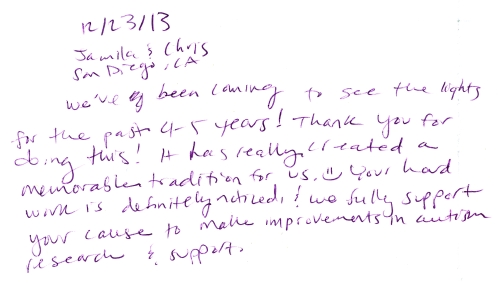 12/23/13
Jamila & Chris
San Diego, CA
we've been coming to see the lights
for the past 4-5 years! Thank you for
doing this! It has really created a
memorable tradition for us. Your hard
work is definitely noticed, & we fully support
your cause to make improvements in autism
research & support.